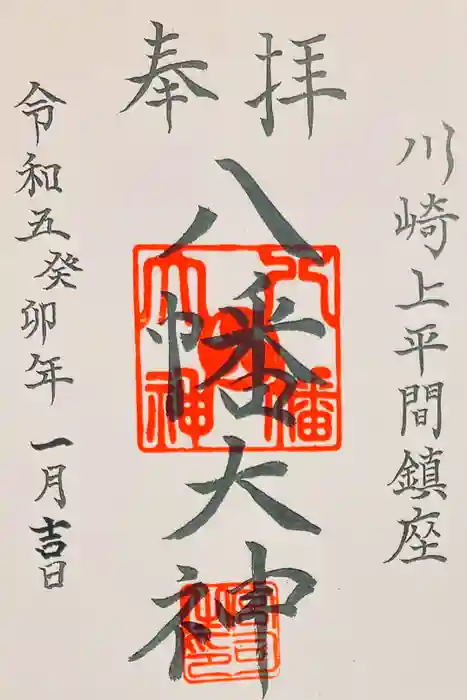 奉拝
川崎上平間鎮座
八幡大神
令和五癸卯年 一月吉日
八幡
大神